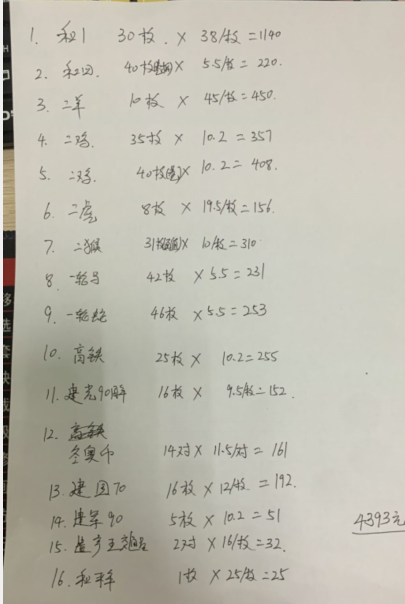 1. 和1 30枚 × 38/枚 = 1140
2. 和四. 40枚 × 5.5/枚 = 220.
3. 二羊 10枚 × 45/枚 = 450.
4. 二鸡. 35枚 × 10.2 = 357
5. 二鸡. 40枚 × 10.2 = 408.
6. 二虎 8枚 × 19.5/枚 = 156.
7. 二猴 31枚 × 10/枚 = 310
8. 一轮马 42枚 × 5.5 = 231
9. 一轮蛇 46枚 × 5.5 = 253
10. 高铁 25枚 × 10.2 = 255
11. 建党90周年 16枚 × 9.5/枚 = 152.
12. 高铁
冬奥币 14对 × 11.5/对 = 161
13. 建国70 16枚 × 12/枚 = 192.
14. 建军90 5枚 × 10.2 = 51
4393元
15. 2对 × 16/枚 = 32.
16. 和羊 1枚 × 25/枚 = 25